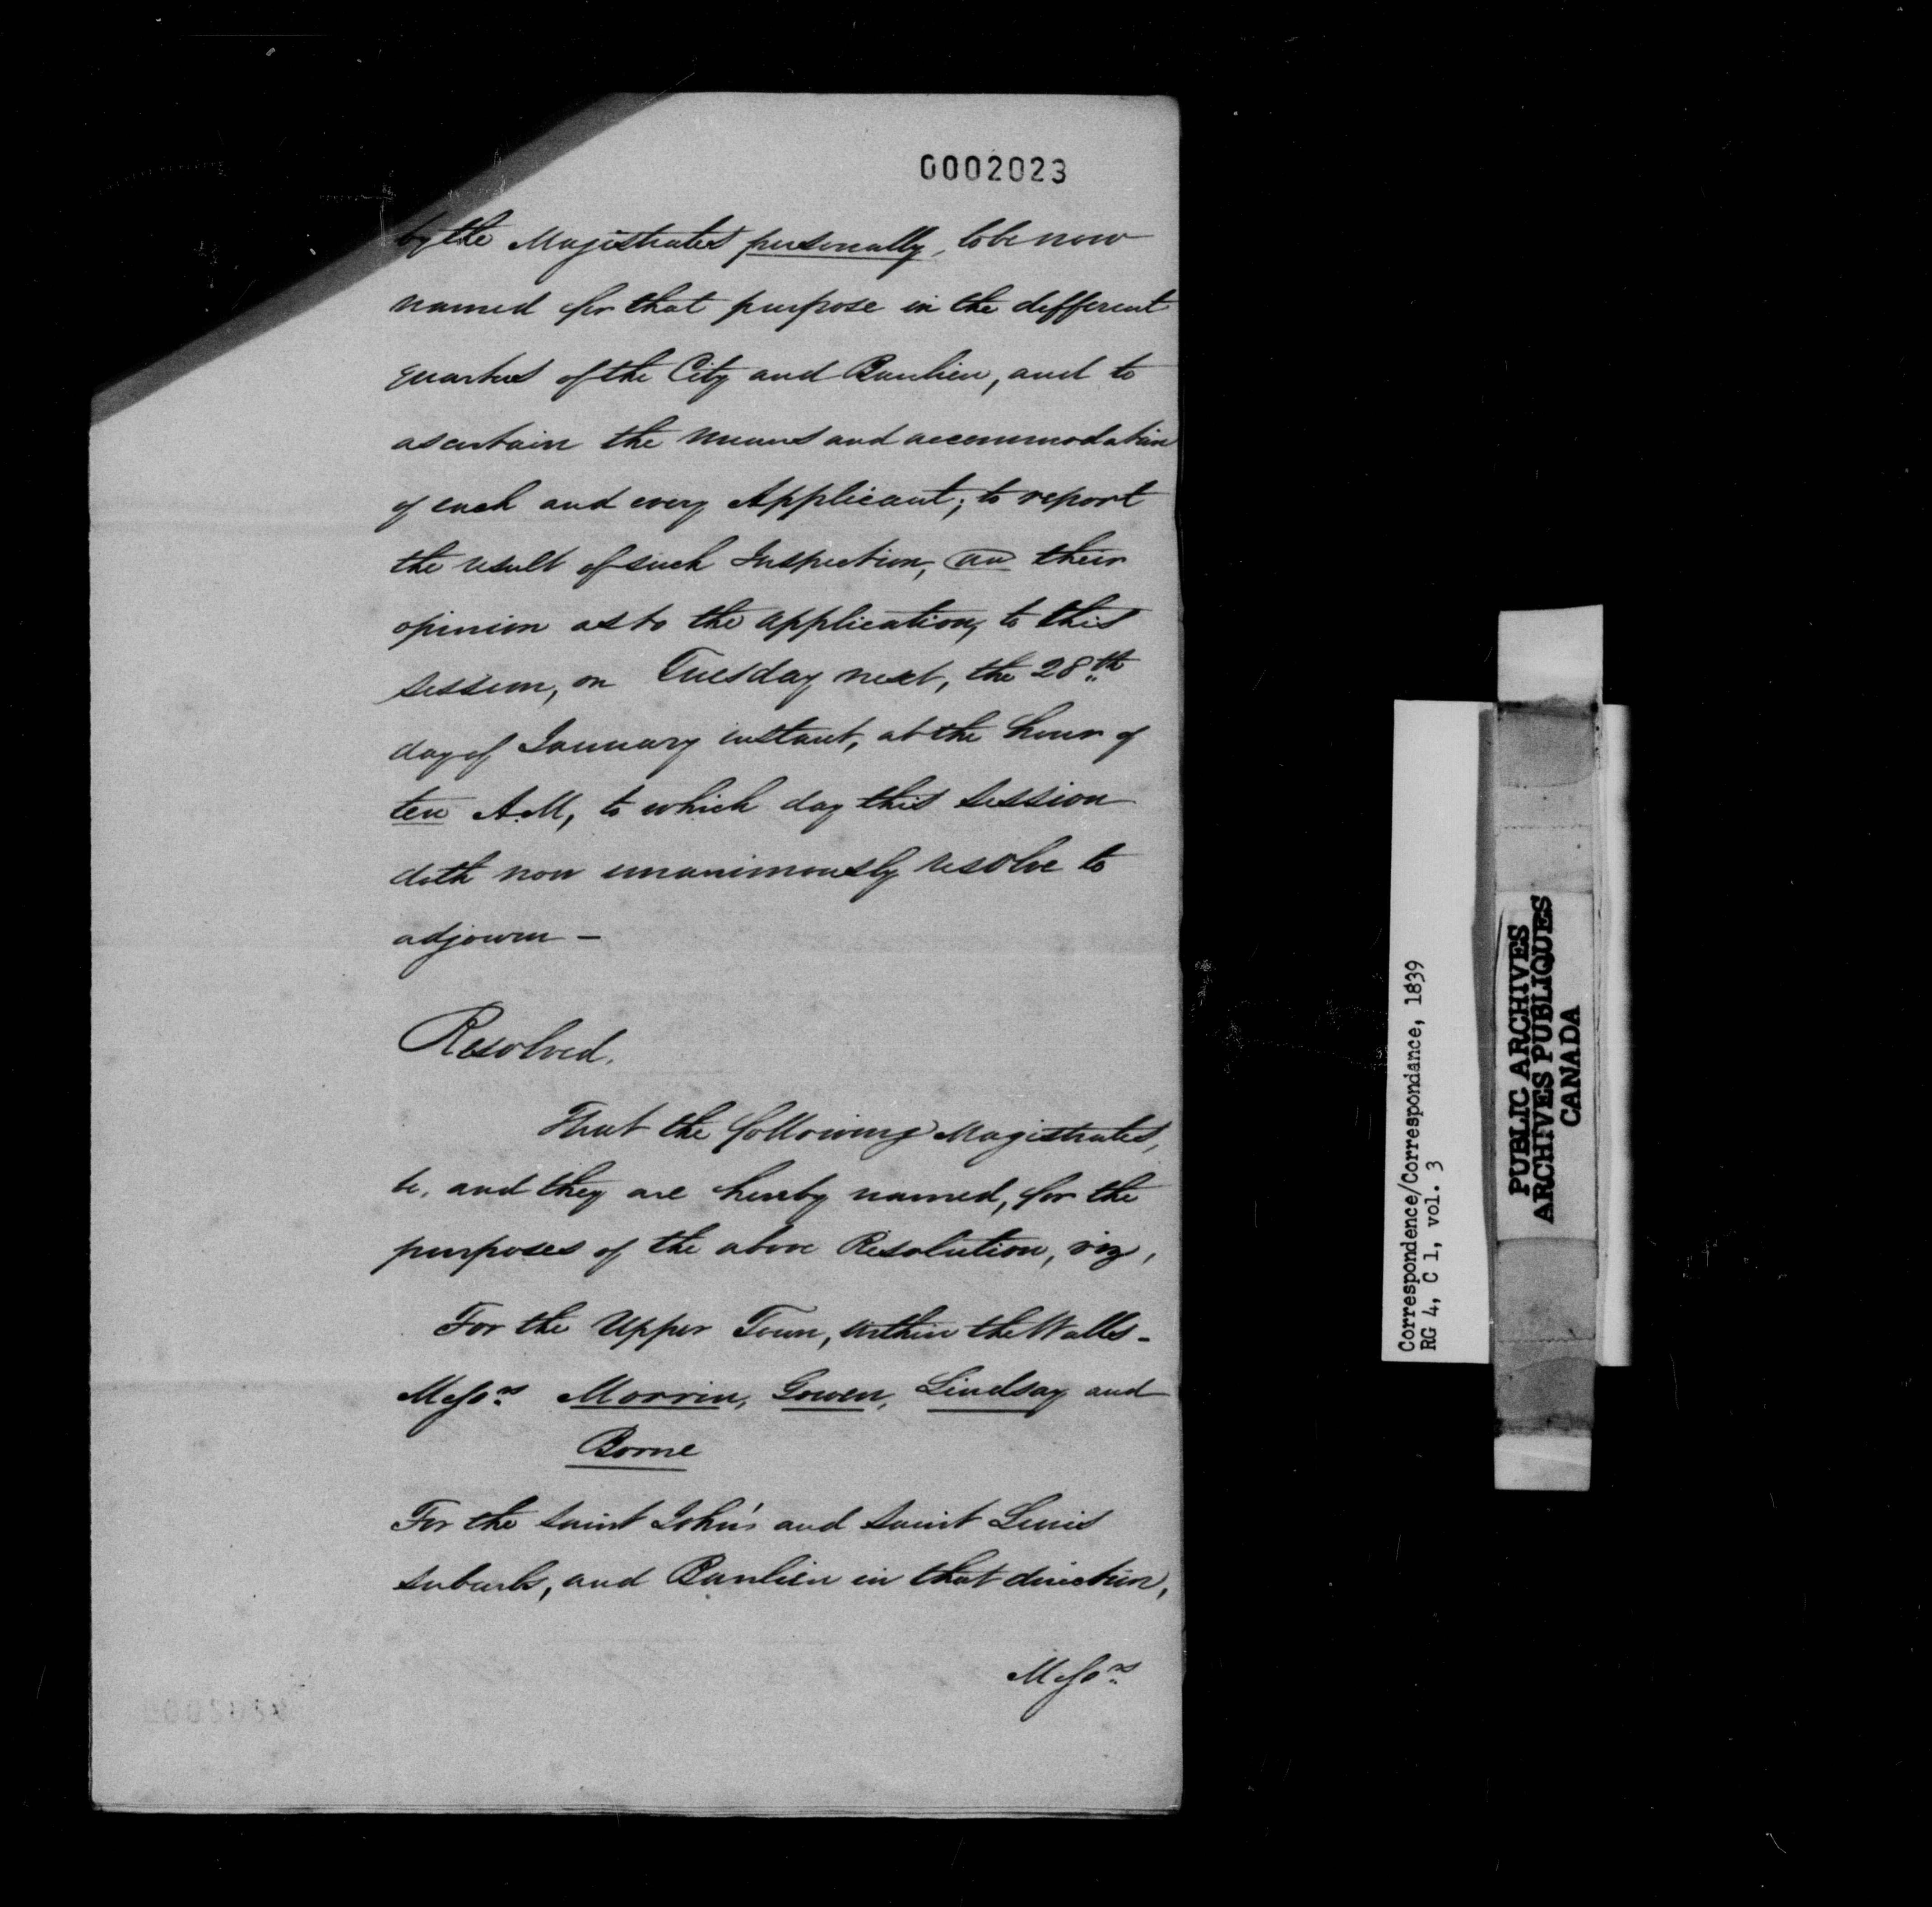 0002023
by the Magistrates personally, to be now
named for that purpose in the different
quarters of the City and Banlieu, and to
ascertain the means and accommodation
of each and every Applicant; to report
the result of such Inspection, an their
opinion as to the application, to this
session, on Tuesday next, the 28th
day of January instant, at the hour of
ten A.M, to which day this session
doth now unanimously resolve to
adjourn -
Resolved.
That the following Magistrates,
be, and they are hereby named, for the
purposes of the above Resolution, viz,
For the Upper Town, within the Walls-
Messrs Morrin, Gowen, Lindsay and
Borne
For the Saint John's and Saint Lewis
suburbs, and Banlieu in that direction,
Messrs
Correspondence/Correspondance, 1839
RG 4, C 1, vol. 3
PUBLIC ARCHIVES
ARCHIVES PUBLIQUES
CANADA